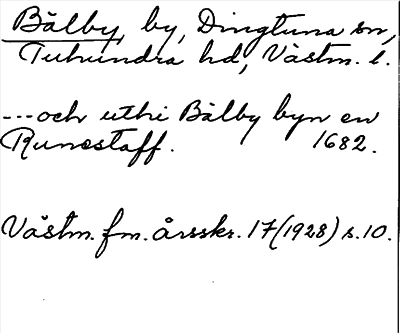 Bälby, by, Dingtuna sn,
Tuhundra hd, Västm. l.
---och uthi Bälby byn en
Runestaff. 1682.
Västm. fm. årsskr. 17 (1928) s. 10.